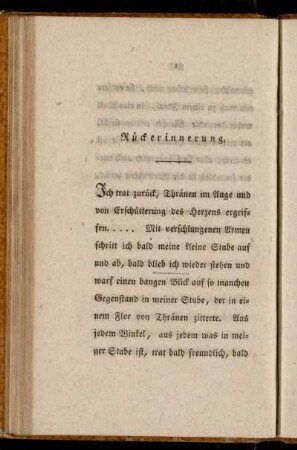 Rückerinnerung.
Ich trat zurück, Thränen im Auge und
von Erschütterung des Herzens ergrif-
fen..... Mit verschlungenen Armen
schritt ich bald meine kleine Stube auf
und ab, bald blieb ich wieder stehen und
warf einen bangen Blick auf so manchen
Gegenstand in meiner Stube, der in ei-
nem Flor von Thränen zitterte. Aus
jedem Winkel, aus jedem was in mei-
ner Stube ist, trat bald freundlich, bald